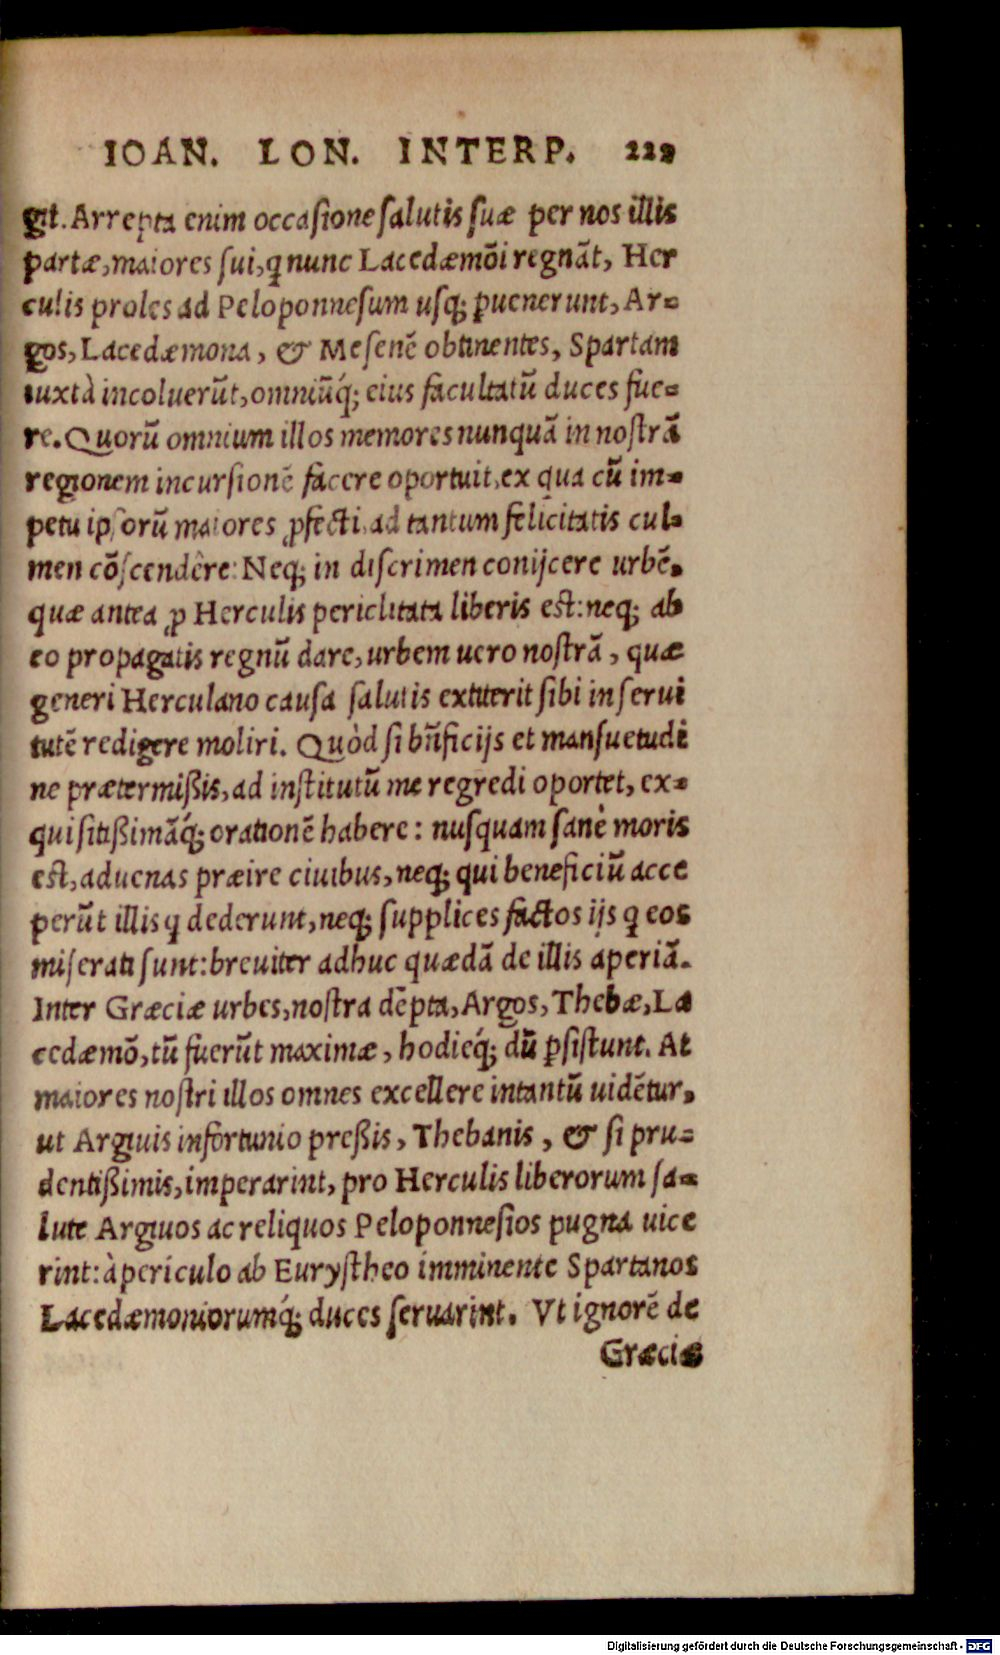 IOAN. LON. INTERP. 229
git. Arrepta enim occaſione ſalutis ſuæ per nos illis
partæ, maiores ſui, ꝗ nunc Lacedæmõi regnãt, Her
culis proles ad Peloponneſum uſq; ꝑuenerunt, Ar-
gos, Lacedæmona, & Meſenẽ obtinentes, Spartam
iuxtà incoluerũt, omniũq́; eius facultatũ duces fue-
re. Quorũ omnium illos memores nunquã in noſtrã
regionem incurſionẽ facere oportuit, ex qua cũ im-
petu ipſorũ maiores ꝓfecti, ad tantum felicitatis cul-
men cõſcendêre: Neq; in diſcrimen conijcere urbẽ,
quæ antea ꝓ Herculis periclitata liberis eſt: neq; ab
eo propagatis regnũ dare, urbem uero noſtrã, quæ
generi Herculano cauſa ſalutis extiterit ſibi in ſerui
tutẽ redigere moliri. Quòd ſi bñficijs et manſuetudi
ne prætermißis, ad inſtitutũ me regredi oportet, ex-
quiſitißimãq́; orationẽ habere: nuſquam ſanè moris
eſt, aduenas præire ciuibus, neq; qui beneficiũ acce
perũt illis ꝗ dederunt, neq; ſupplices factos ijs ꝗ eos
miſerati ſunt: breuiter adhuc quædã de illis aperiã.
Inter Græciæ urbes, noſtra dẽpta, Argos, Thebæ, La
cedæmõ, tũ fuerũt maximæ, hodieq́; dũ ꝑſiſtunt. At
maiores noſtri illos omnes excellere intantũ uidẽtur,
ut Argiuis infortunio preßis, Thebanis, & ſi pru-
dentißimis, imperarint, pro Herculis liberorum ſa-
lute Argiuos ac reliquos Peloponneſios pugna uice
rint: à periculo ab Euryſtheo imminente Spartanos
Lacedæmoniorumq́; duces ſeruarint. Vt ignorẽ de
Græcia
Digitalisierung gefördert durch die Deutsche Forschungsgemeinschaft - DFG